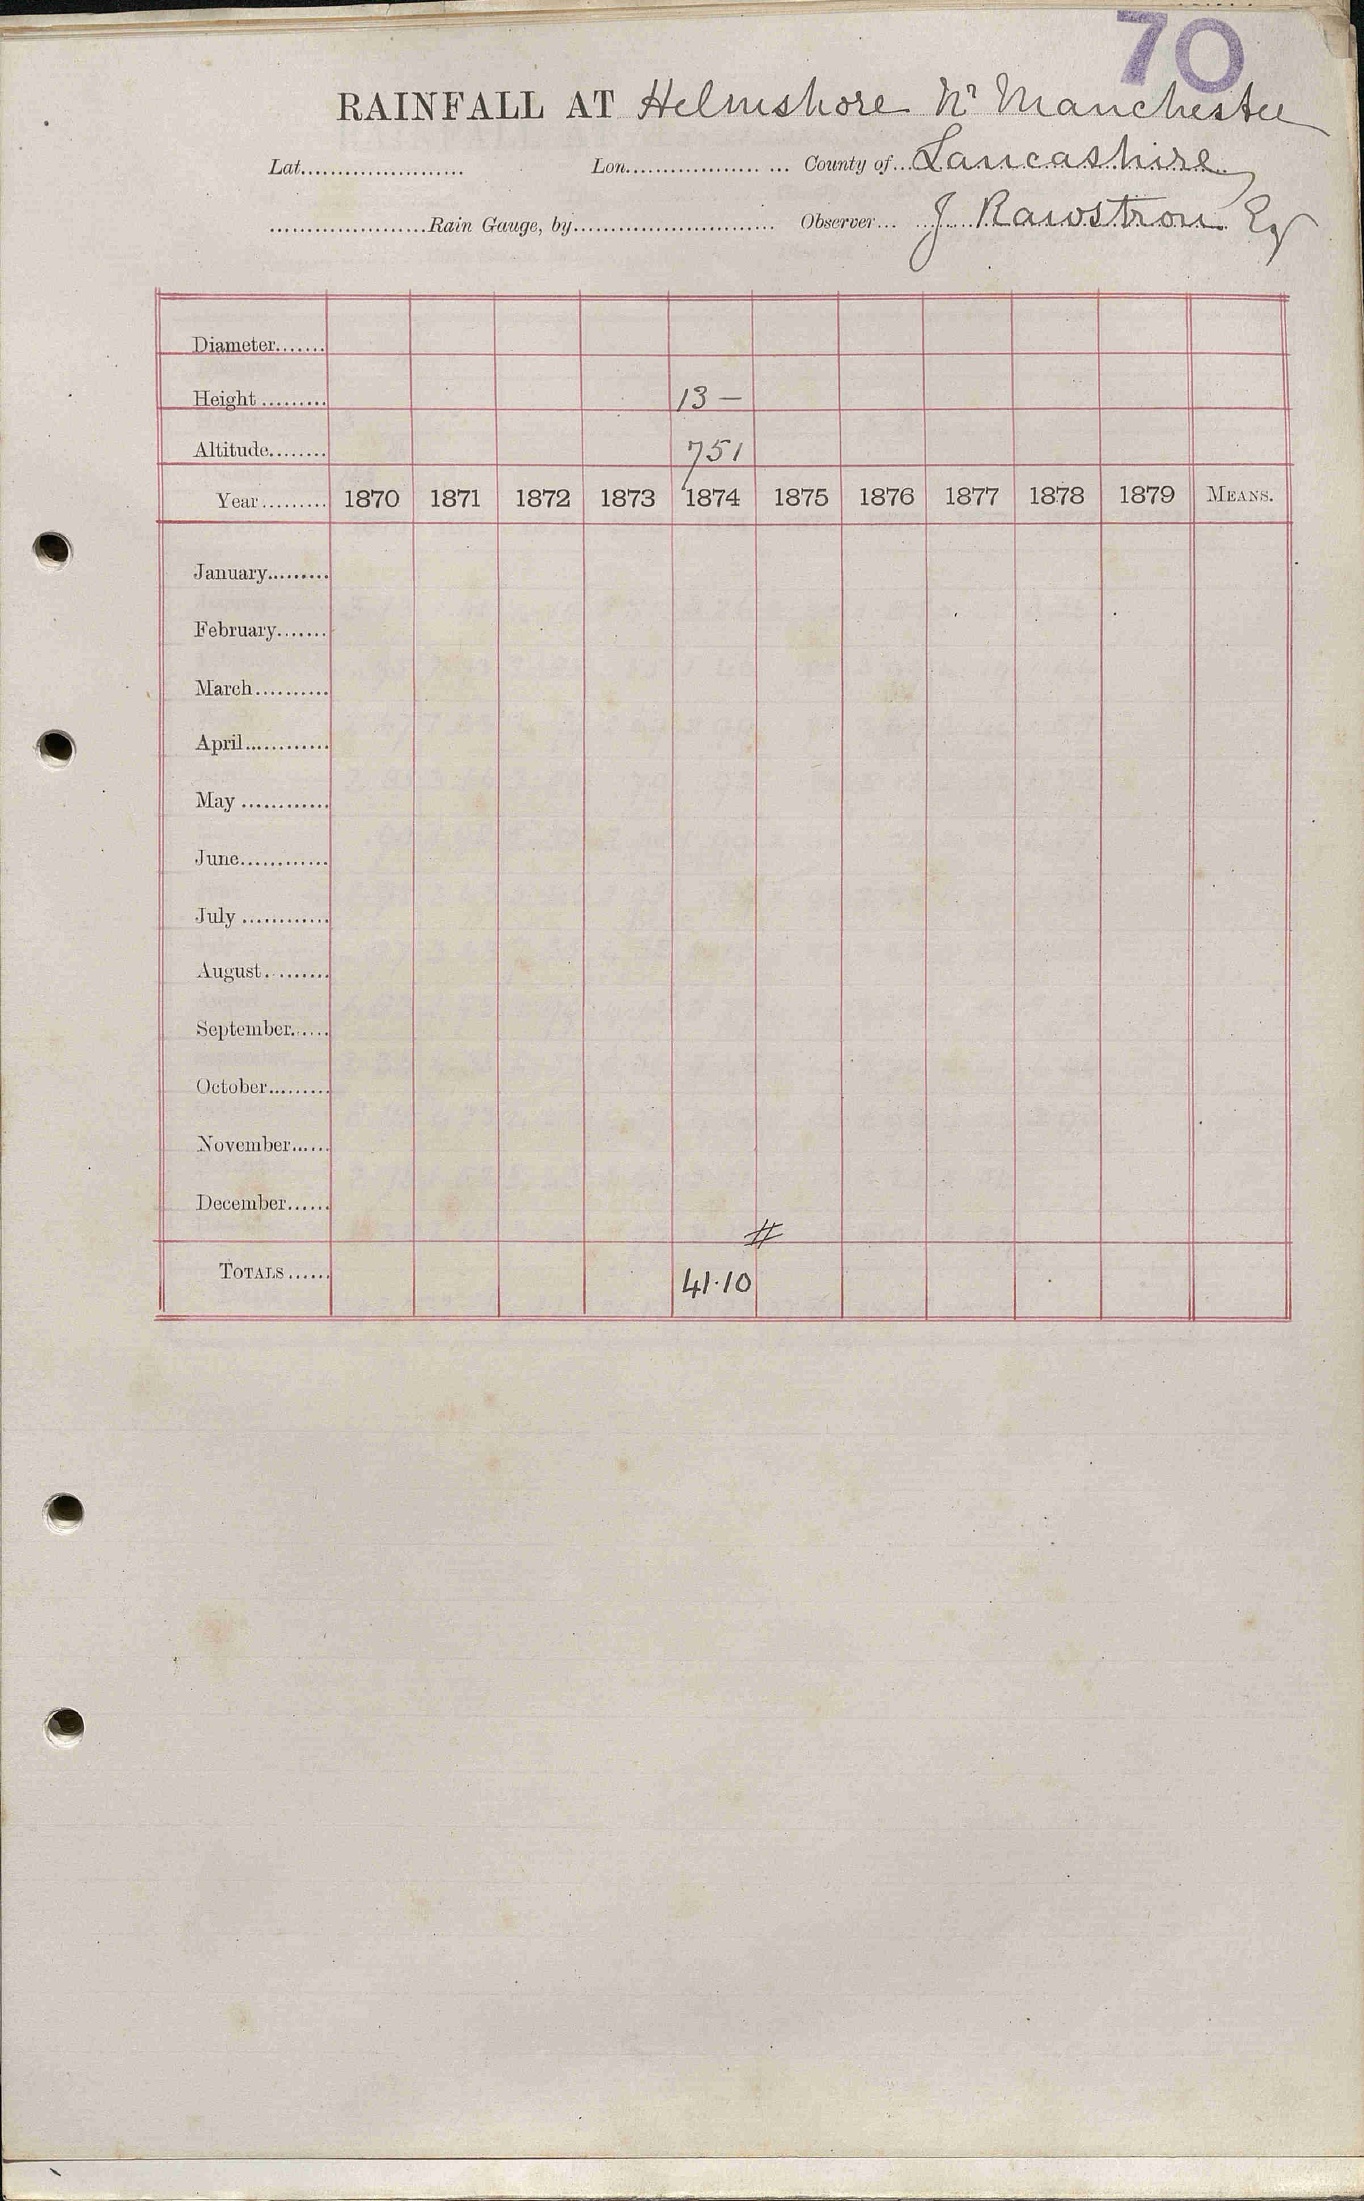 70
RAINFALL AT Helmshore Nr Manchester
Lat...................... Lon...................... County of... Lancashire
.....................Rain Gauge, by........................... Observer... J Rawstron Esq
Diameter.......
Height ......... 13 –
Altitude........ 751
Year......... 1870 1871 1872 1873 1874 1875 1876 1877 1878 1879 MEANS.
January.........
February.......
March..........
April............
May ............
June............
July ............
August.........
September......
October.........
November......
December......
#
TOTALS...... 41.10